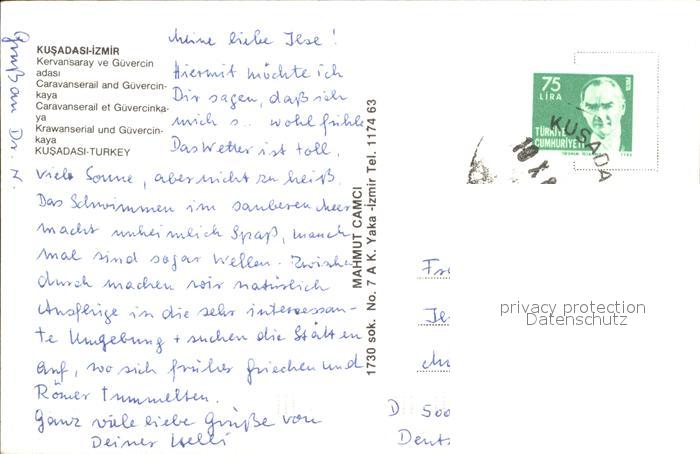 Gruß an Dr. K.
KUŞADASI-İZMİR
Kervansaray ve Güvercin
adası
Caravanserail and Güvercin-
kaya
Caravanserail et Güvercinka-
ya
Krawanserial und Güvercin-
kaya
KUŞADASI-TURKEY
Meine liebe Ilse!
Hiermit möchte ich
Dir sagen, daß ich
mich s.. wohl fühle.
Das Wetter ist toll,
viel Sonne, aber nicht zu heiß.
Das Schwimmen im sauberen Meer
macht unheimlich Spaß, manch
mal sind sogar Wellen. Zwischen
durch machen wir natürlich
Ausflüge in die sehr interessan-
te Umgebung + suchen die Stätten
auf, wo sich früher Griechen und
Römer tummelten.
Ganz viele liebe Grüße von
Deiner Helli
MAHMUT CAMCI
1730 sok. No. 7 A K. Yaka -İzmir Tel. 1174 63
75
LİRA
POSTA
TÜRKİYE
CUMHURİYETİ
KUSADA
10 X
Fr
Ils
D 500
Deuts
privacy protection
Datenschutz